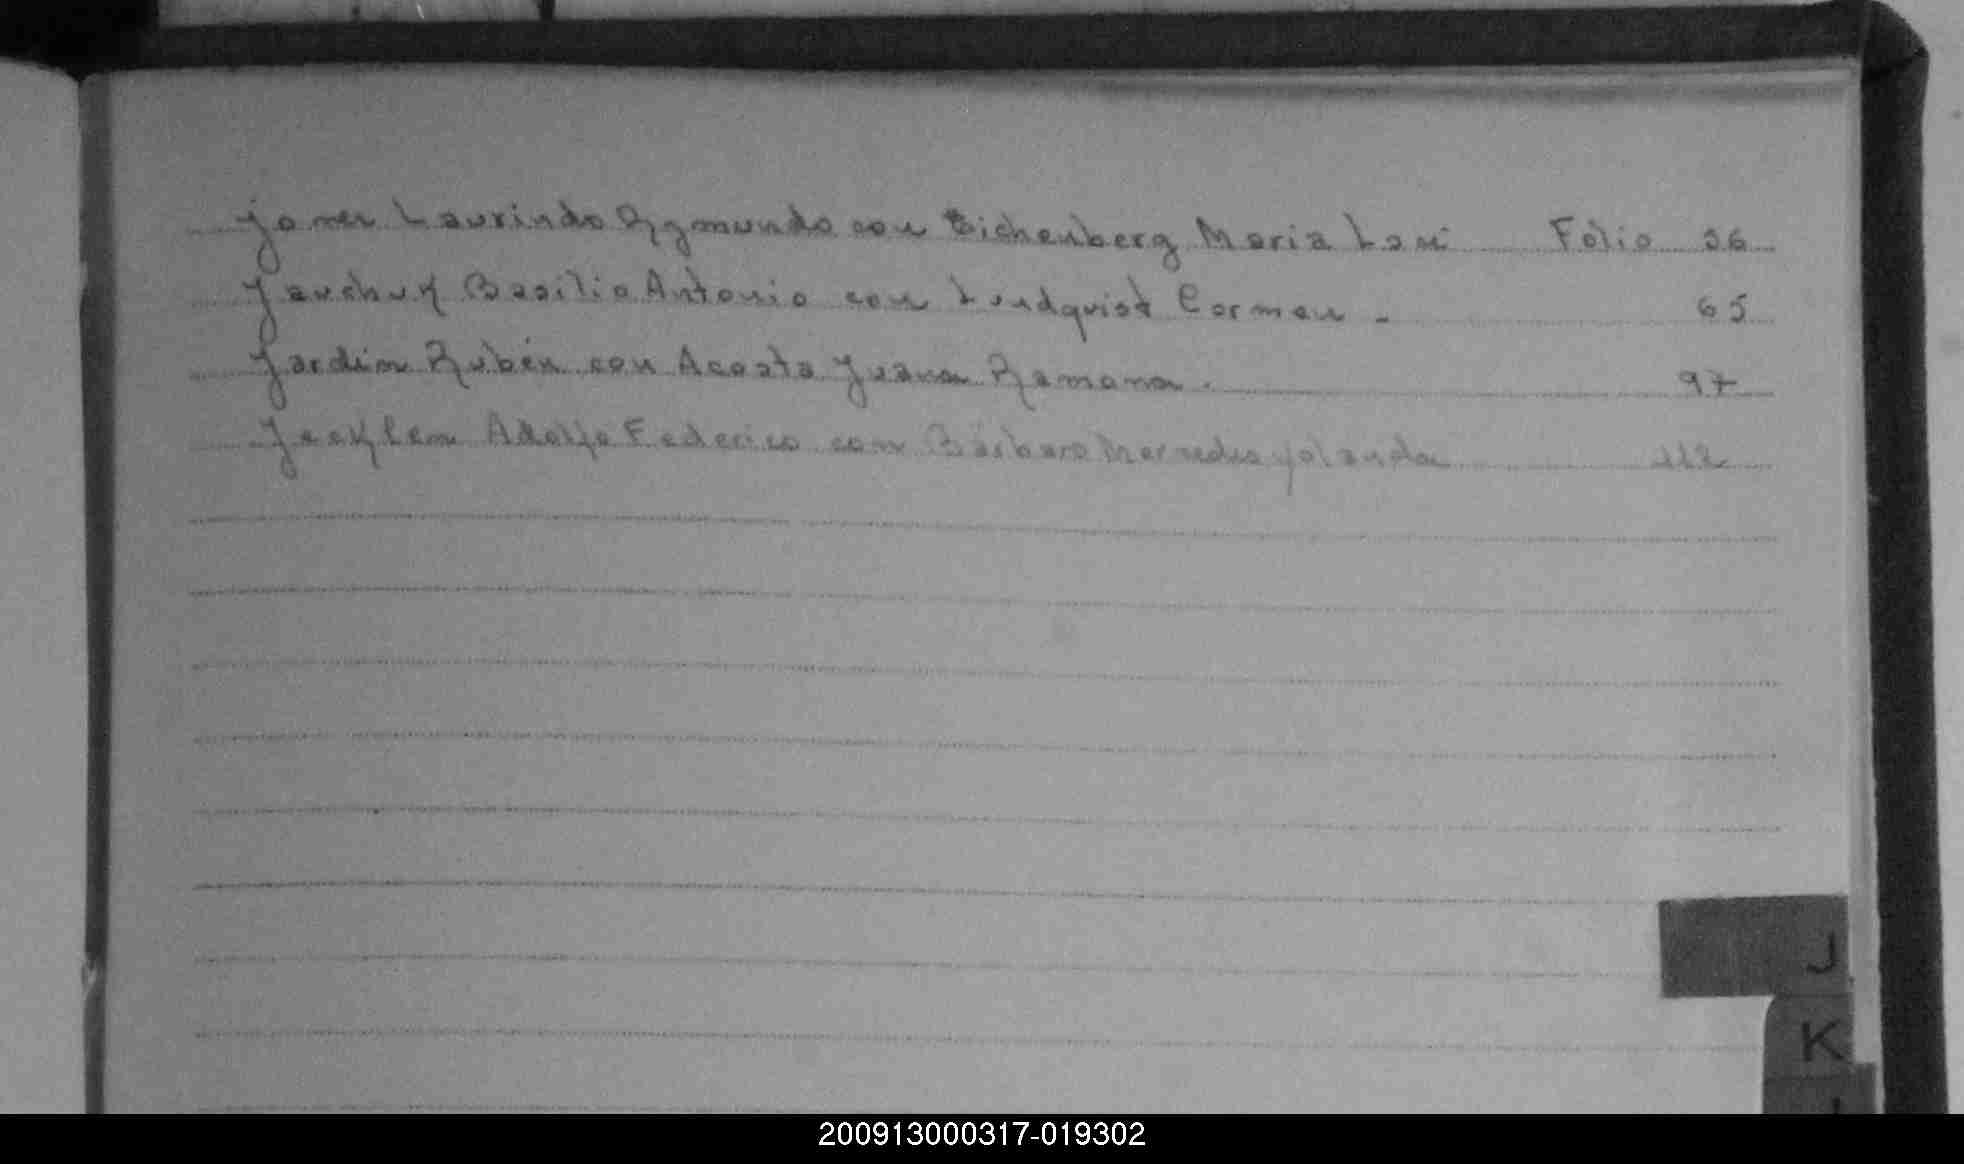 Janer Laurindo Rymundo con Eichenberg Maria Loni Folio 36
Jauchuk Basilio Antonio con Lundquist Carmen - 65
Jardim Rubén con Acosta Juana Ramona. 97
Adolfo Federico con Bárbaro Mercedes Yolanda 112
J
K
200913000317-019302